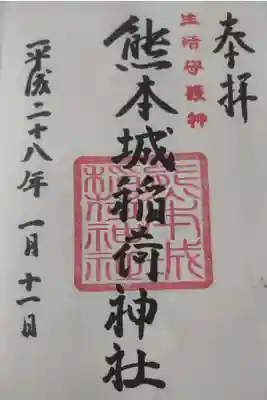 奉拝
生活守護神
熊本城稲荷神社
熊本城稲荷神社
平成二十八年 一月十一日